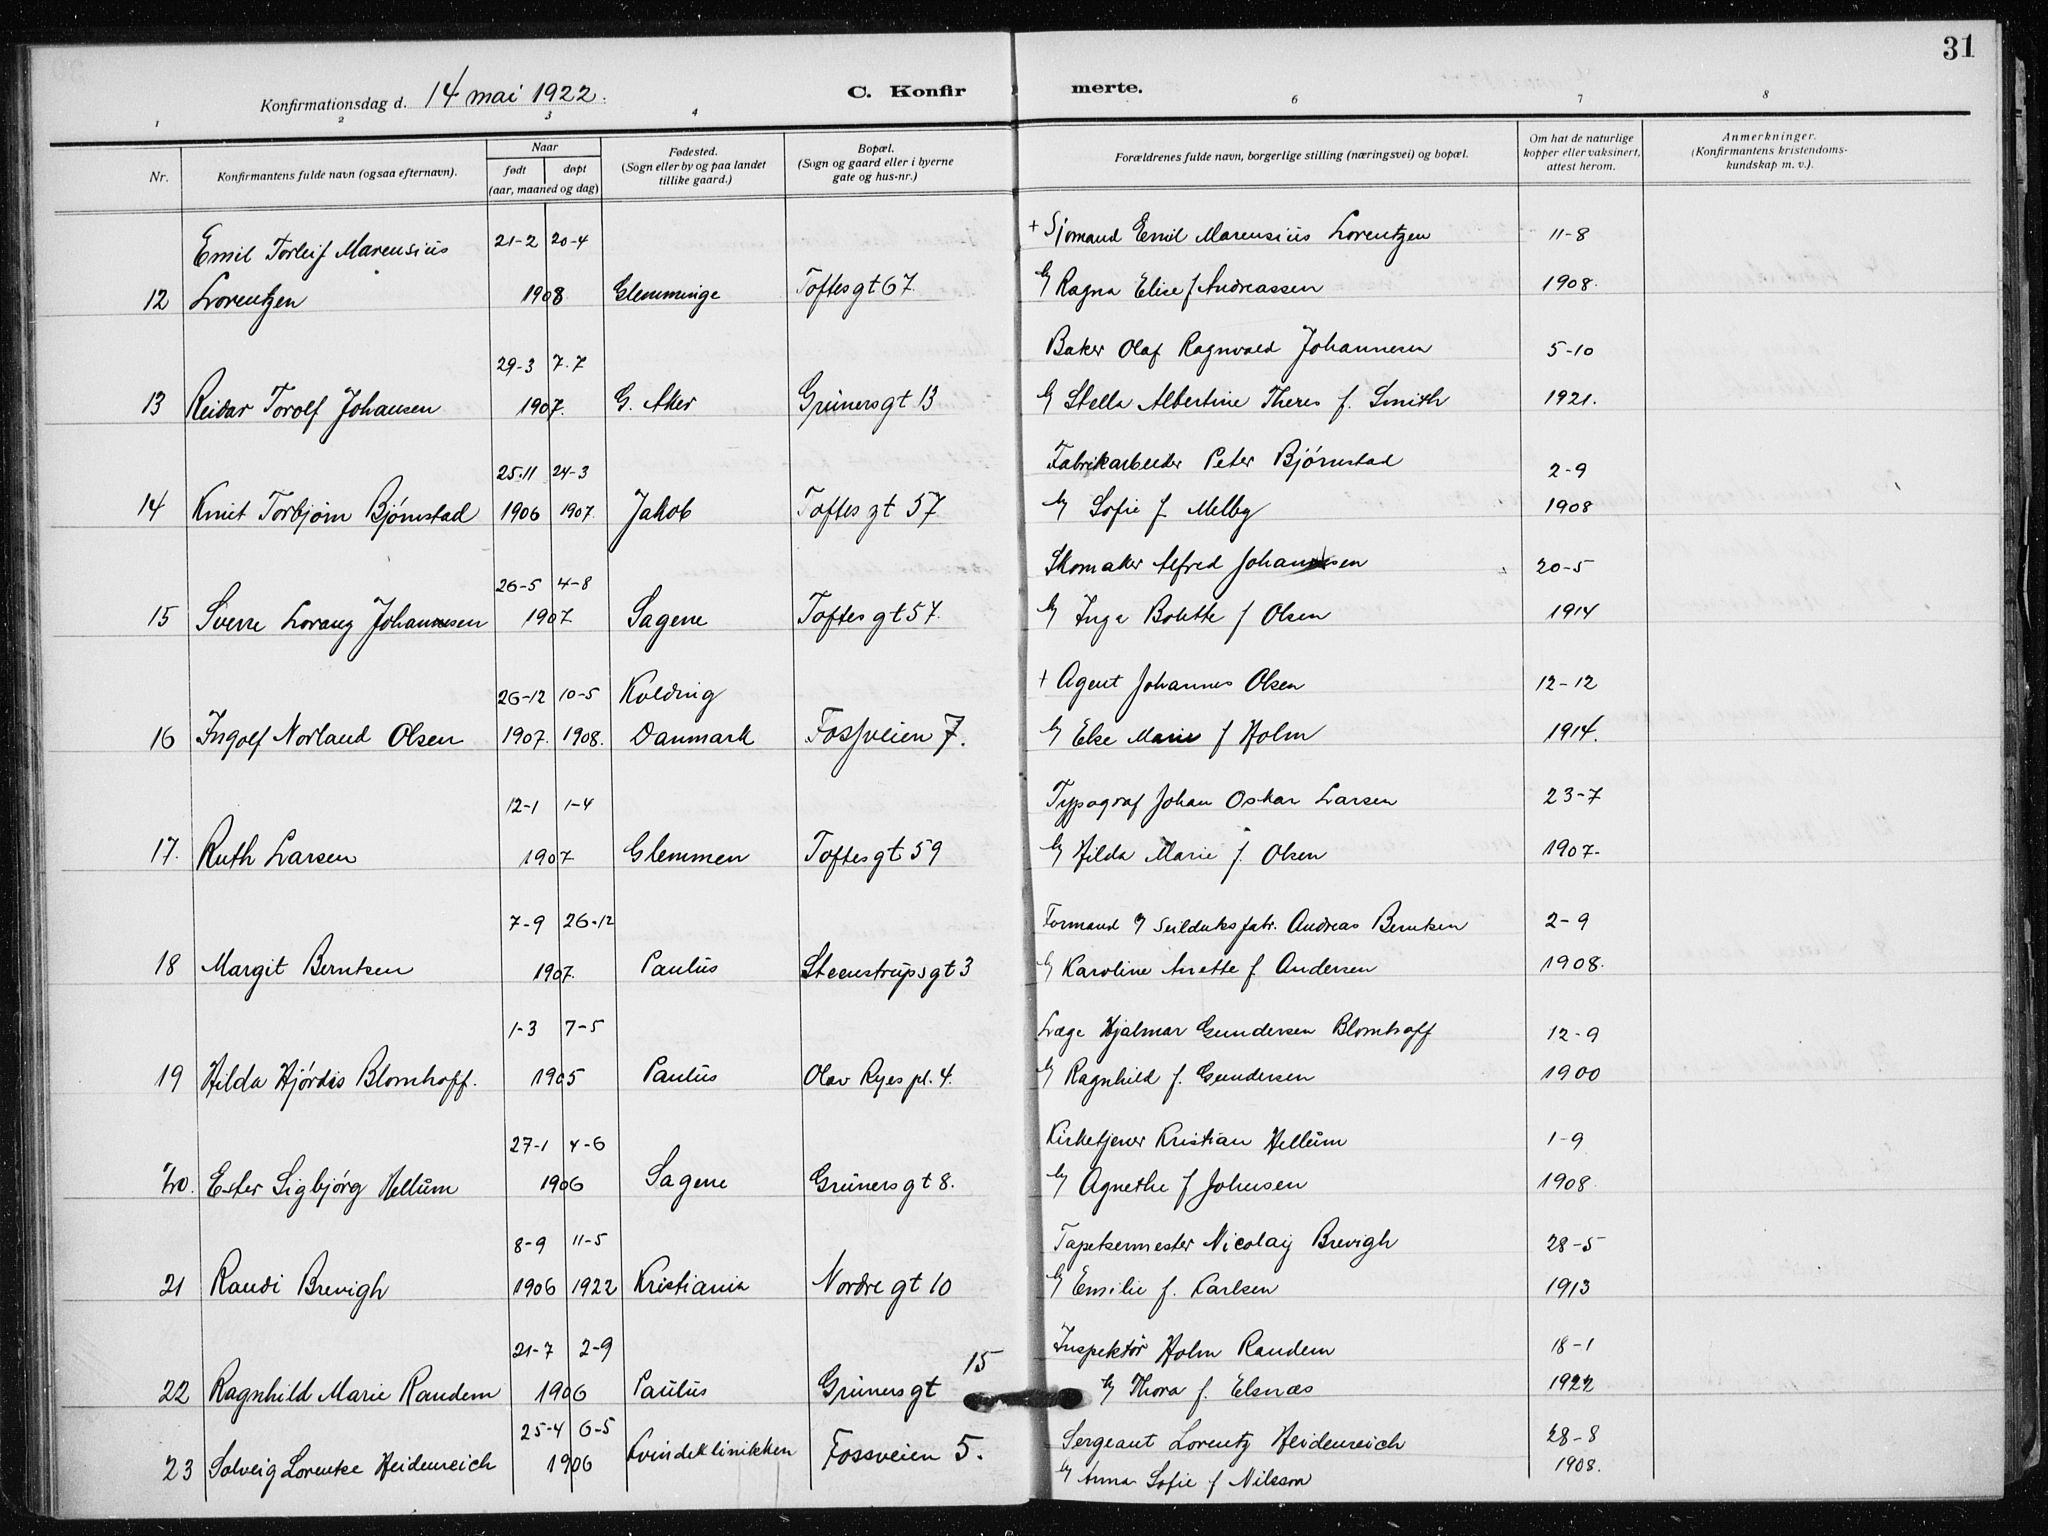 31
Konfirmationsdag d. 14 mai 1922.
C. Konfir merte.
1 2 3 4 6 7 8
Nr.
Konfirmantens fulde navn (ogsaa efternavn).
Naar
født døpt
(aar, maaned og dag)
Fødested.
(Sogn eller by og paa landet
tillike gaard.)
Bopæl.
(Sogn og gaard eller i byerne
gate og hus-nr.)
Forældrenes fulde navn, borgerlige stilling (næringsvei) og bopæl.
Om hat de naturlige
kopper eller vaksinert,
attest herom.
Anmerkninger.
(Konfirmantens kristendoms-
kundskap m. v.).
Emil Torleif Marensius 21-2 20-4 + Sjømand Emil Marensius Lorentzen 11-8
12 Lorentzen 1908 Glemminge Toftesgt 67. og Ragna Elise f Andreassen 1908.
29-3 7-7 Baker Olaf Ragnvald Johannesen 5-10
13 Reidar Torolf Johansen 1907. G. Aker Grünersgt 13 og Stella Albertine Theres f. Smith 1921.
25-11 24-3 Fabrikarbeider Peter Bjørnstad 2-9
14 Knut Torbjørn Bjørnstad 1906 1907. Jakob Toftes gt 57 og Sofie f. Melby 1908
26-5 4-8 Skomaker Alfred Johansen 20-5
15 Sverre Lorang Johannesen 1907 Sagene Toftesgt 57. og Inga Bolette f Olsen 1914
26-12 10-5 Kolding + Agent Johannes Olsen 12-12
16 Ingolf Norland Olsen 1907. 1908. Danmark Fossveien 7. og Else Marie f Holm 1914.
12-1 1-4 Typograf Johan Oskar Larsen 23-7
17. Ruth Larsen 1907 Glemmen Toftesgt 59 og Hilda Marie f. Olsen 1907.
7-9 26-12 Formand v Seilduksfabr. Andreas Berntsen 2-9
18 Margit Berntsen 1907. Paulus Steenstrupsgt 3 og Karoline Anette f Andersen 1908.
1-3 7-5 Læge Hjalmar Gundersen Blomhoff 12-9
19 Hilda Hjørdis Blomhoff. 1905 Paulus Olav Ryes pl. 4. og Ragnhild f. Gundersen 1900
27-1 4-6 Kirketjener Kristian Hellum 1-9
20. Ester Sigbjørg Hellum 1906 Sagene Grünersgt 8. og Agnethe f Johnsen 1908.
8-9 11-5 Tapetsermester Nicolay Brevigh 28-5
21 Randi Brevigh 1906 1922 Kristiania Nordre gt 10 og Emilie f. Carlsen 1913
21-7 2-9 Inspektør Holm Randem 18-1
22 Ragnhild Marie Randem 1906 Paulus Grünersgt 15 og Thora f. Elsnæs 1922
25-4 6-5 Sergeant Lorentz Heidenreich 28-8
23 Solveig Lorentze Heidenreich 1906 Kvindeklinikken Fossveien 5. og Anna Sofie f Nilsson 1908.